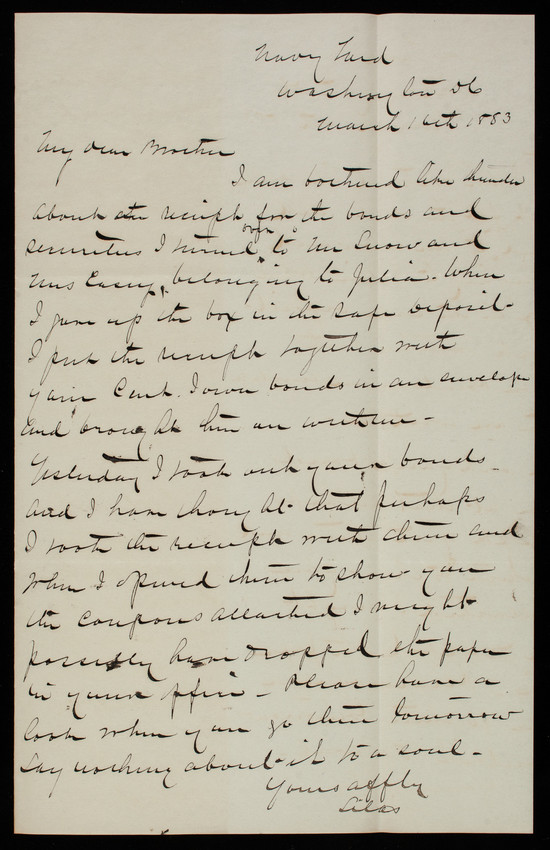 Navy Yard
Washington DC
March 16th 1883
My dear Brother
I am bothered like thunder
about the receipt for the bonds and
securities I turned over to Mr Snow and
Mrs Casey, belonging to Julia. When
I gave up the box in the safe deposit
I put the receipt together with
your Cent. Iowa bonds in an envelope
and brought him an
Yesterday I took out your bonds
and I have thought that perhaps
I took the receipt with them and
when I opened them to show you
the coupons attached I might
possibly have dropped the paper
in your office - Please have a
look when you go there tomorrow
Say nothing about it to a soul -
Yours affly
Silas